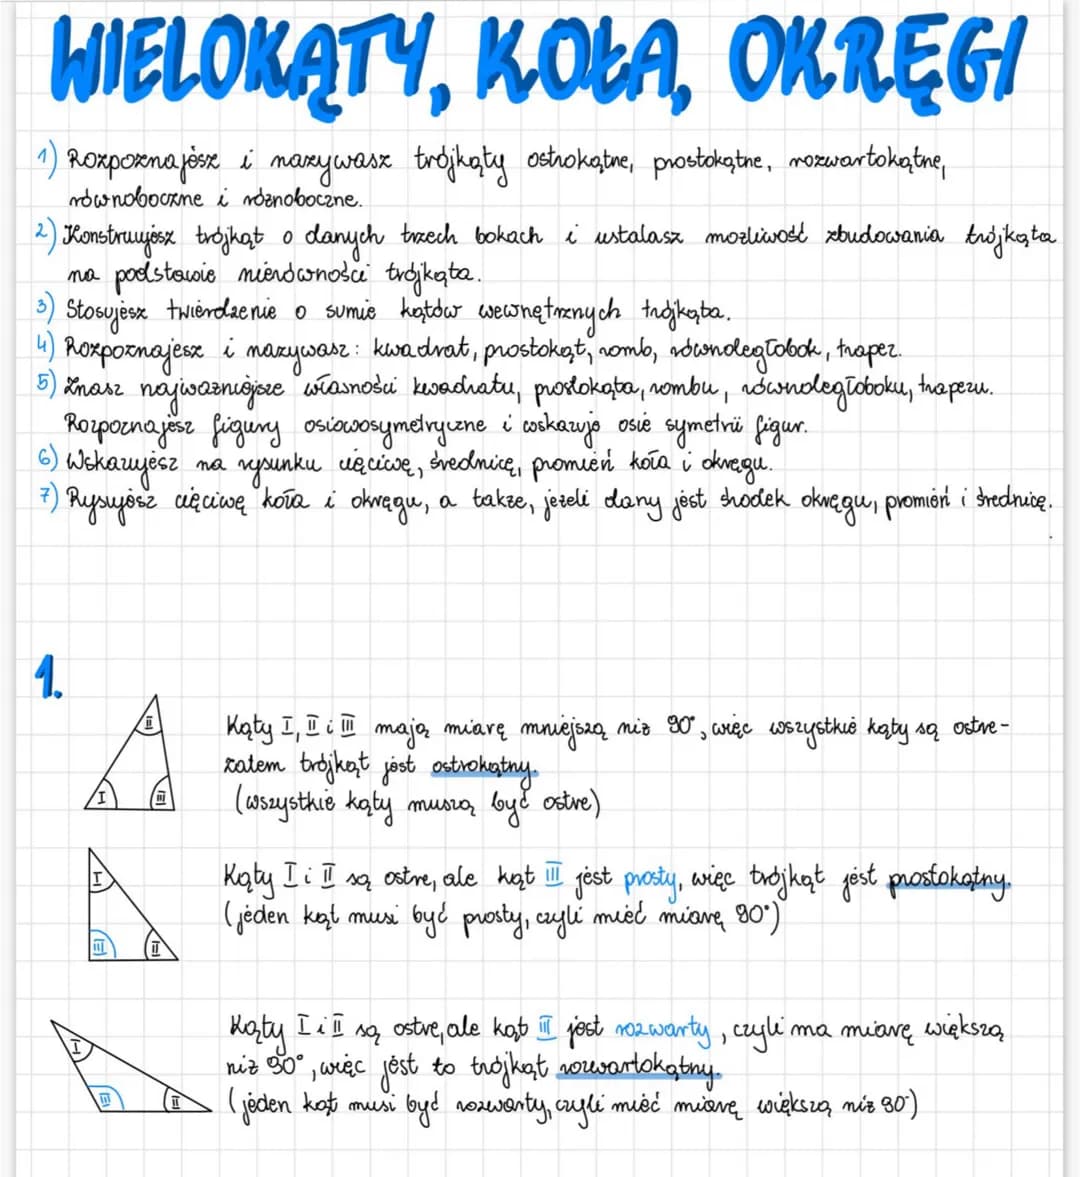 WIELOKĄTY, KOŁA, OKRĘGI
1) Rozpoznajesz i nazywasz trójkąty ostrokątne, prostokątne, rozwartokątne,
równoboczne i różnoboczne.
2) Konstruujesz trójkąt o danych trzech bokach i ustalasz możliwość zbudowania trójkąta
na podstawie nierówności trójkąta.
3) Stosujesz twierdzenie o sumie kątów wewnętrznych trójkąta.
4) Rozpoznajesz i nazywasz: kwadrat, prostokąt, romb, równoległobok, trapez.
5) Znasz najważniejsze własności kwadratu, prostokąta, rombu, równoległoboku, trapezu.
Rozpoznajesz figury osiowosymetryczne i wskazuje osie symetrii figur.
6) Wskazujesz na rysunku cięciwę, średnicę, promień koła i okręgu.
7) Rysujesz cięciwę koła i okręgu, a także, jeżeli dany jest środek okręgu, promień i średnicę.
1.
II
I III
Kąty I, II i III mają miarę mniejszą niż 90°, więc wszystkie kąty są ostre-
zatem trójkąt jest ostrokątny.
(wszystkie kąty muszą być ostre)
I
III II
Kąty I i II są ostre, ale kąt III jest prosty, więc trójkąt jest prostokątny.
(jeden kąt musi być prosty, czyli mieć miarę 90°)
I
III II
Kąty I i II są ostre, ale kąt III jest rozwarty, czyli ma miarę większą
niż 90°, więc jest to trójkąt rozwartokątny.
(jeden kąt musi być rozwarty, czyli mieć miarę większą niż 90°)